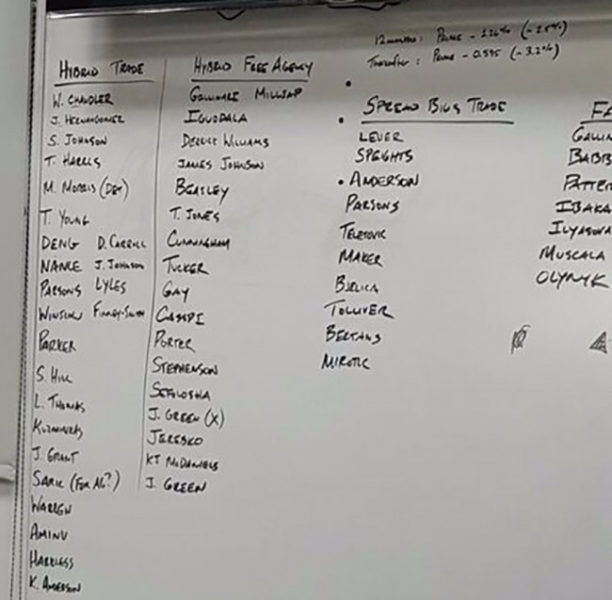 12 months: Prime - 1.26% (-2.5%)
Thereafter: Prime - 0.595 (-3.2%)
HYBRID TRADE
W. CHANDLER
J. HERNANGOMEZ
S. JOHNSON
T. HARRIS
M. MORRIS (DET)
T. YOUNG
DENG D. CARROLL
NANCE J. JOHNSON
PARSONS LYLES
WINSLOW FINNEY-SMITH
PARKER
S. HILL
L. THOMAS
KUZMINSKAS
J. GRANT
SARIC (FOR AG?)
WARREN
AMINU
HARKLESS
K. ANDERSON
HYBRID FREE AGENCY
GALLINARI MILLSAP
IGUODALA
DERRICK WILLIAMS
JAMES JOHNSON
BEASLEY
T. JONES
CUNNINGHAM
TUCKER
GAY
CASSPI
PORTER
STEPHENSON
SEFOLOSHA
J. GREEN (X)
JEREBKO
KJ MCDANIELS
J. GREEN
SPREAD BIGS TRADE
LEUER
SPEIGHTS
• ANDERSON
PARSONS
TELETOVIC
MAKER
BJELICA
TOLLIVER
BERTANS
MIROTIC
FA
GALLIN
BABB
PATTER
IBAKA
ILYASOVA
MUSCALA
OLYNYK